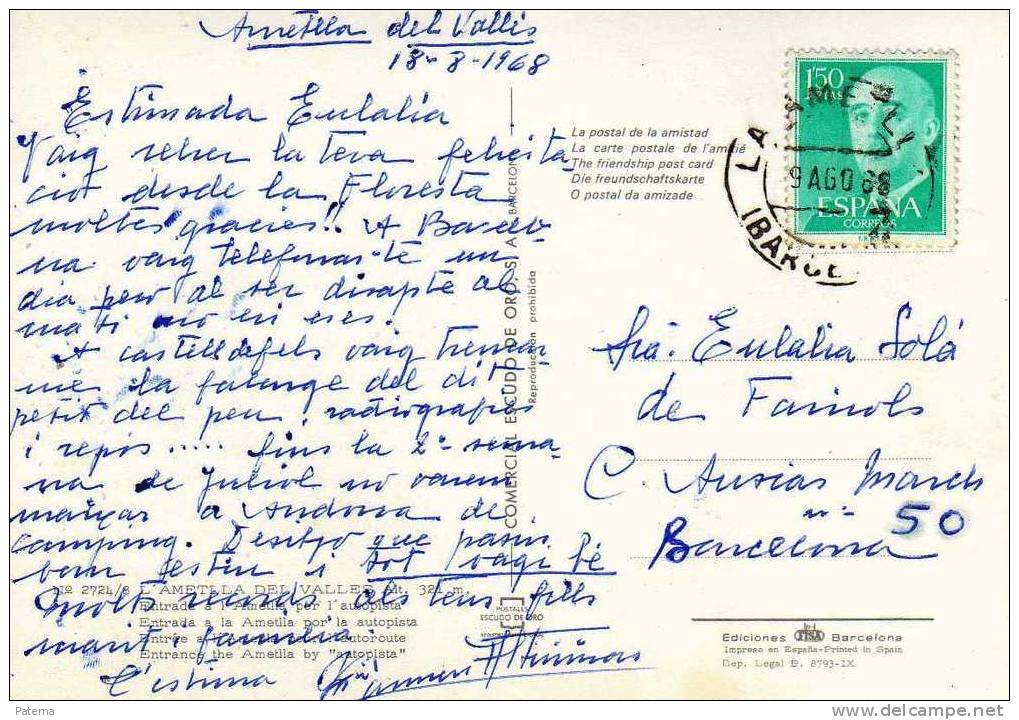 Ametlla del Vallés
18-8-1968
Estimada Eulalia
Vaig rebre la teva felicita
ció desde la Floresta
moltes gracies!! A Barcelo
na vaig telefonar-te un
dia pero al ser disapte al
mati no en eres.
A castelldefels vaig trencar
me la falange del dit
petit del peu, radiografies
i repós..... fins la 2ª setma-
na de Juliol no varem
marxar a Andorra de
camping. Desitjo que paseu
bon estiu i tot vagi bé
molts records als teus fills
marit i familia.
L'estima
Carmen
Nº 2724/8 L'AMETLLA DEL VALLES Alt. 321 m.
Entrade a l'Ametlla per l'autopista
Entrada a la Ametlla por la autopista
Entrance the Ametlla by "autopista"
COMERCIAL ESCUDO DE ORO, S. A. BARCELONA
Reproducción prohibida
POSTALES
ESCUDO DE ORO
La postal de la amistad
La carte postale de l'amitié
The friendship post card
Die freundschaftskarte
O postal da amizade
1'50
PTAS
ESPAÑA
CORREOS
LA AMETLL
9 AGO 68
(BARCE
Sra. Eulalia Solá
de Fainols
C. Ausias March
nº 50
Barcelona
Ediciones FISA Barcelona
Impreso en España-Printed in Spain
Dep. Legal B. 8793-IX
Paterna
www.delcampe.net